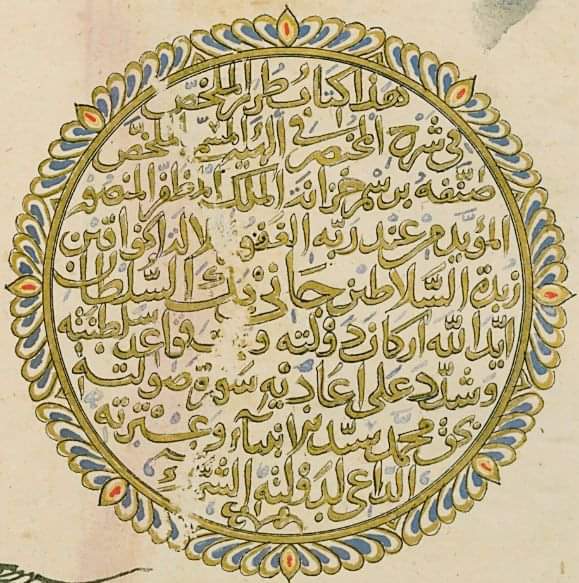 هذا كتاب طراز الملخص
في شرح المختصر في الهيئة المسمى بالملخص
صنفه برسم خزانة الملك المظفر المنصور
المؤيد من عند ربه الغفور
زبدة السلاطين جاني بك السلطان
ايد الله اركان دولته و قواعد سلطنته
وشدد على اعاديه سورة صولته
بحق محمد سيد الانبياء وعترته
الداعي لدولته